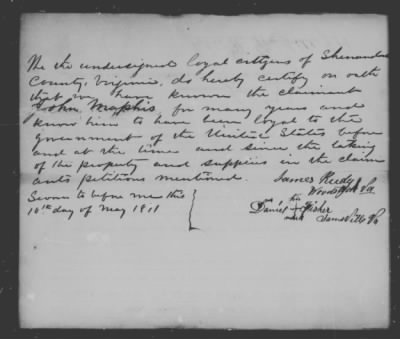 We the undersigned loyal citizens of Shenandoah
County, Virginia, do hereby certify on oath
that we have known the claimant
John Maphis, for many years and
know him to have been loyal to the
government of the United States before
and at the time and since the taking
of the property and supplies in the claim
and petitions mentioned.
James Rudy
Woodstock Va
Sworn to before me this
10th day of May 1911
his
Daniel + Fisher
mark
Va